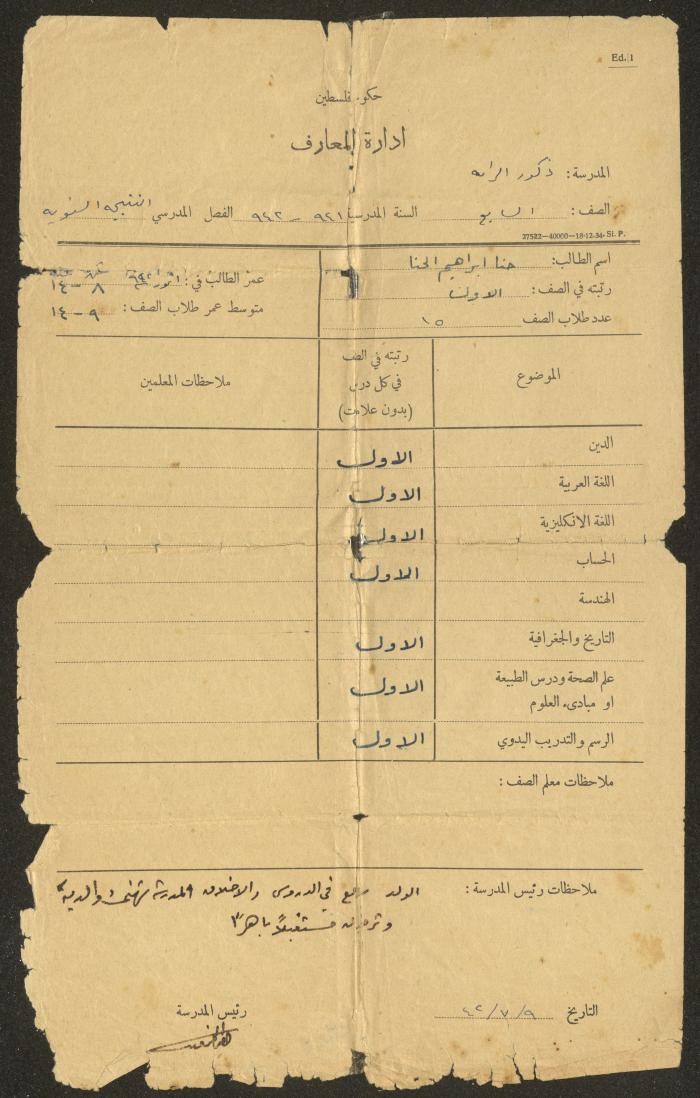 Ed. 1
حكومة فلسطين
ادارة المعارف
المدرسة: ذكور الرامه
الصف: السابع السنة المدرسية ٩٤١ - ٩٤٢ الفصل المدرسي النتيجه السنويه
27522—40000—18-12-34. St. P.
اسم الطالب: حنا ابراهيم الحنا
رتبته في الصف: الاول
عدد طلاب الصف ١٥
عمر الطالب في: ٨ - ١٤
متوسط عمر طلاب الصف: ٩ - ١٤
الموضوع
رتبته في الصف
في كل درس
(بدون علامت)
ملاحظات المعلمين
الدين الاول
اللغة العربية الاول
اللغة الانكليزية الاول
الحساب الاول
الهندسة
التاريخ والجغرافية الاول
علم الصحة ودرس الطبيعة
او مبادىء العلوم الاول
الرسم والتدريب اليدوي الاول
ملاحظات معلم الصف:
ملاحظات رئيس المدرسة: الولد في الدروس والاخلاق المدرسة تهنئ والديه
مستقبلاً باهراً
التاريخ ٤٢/٧/٩
رئيس المدرسة